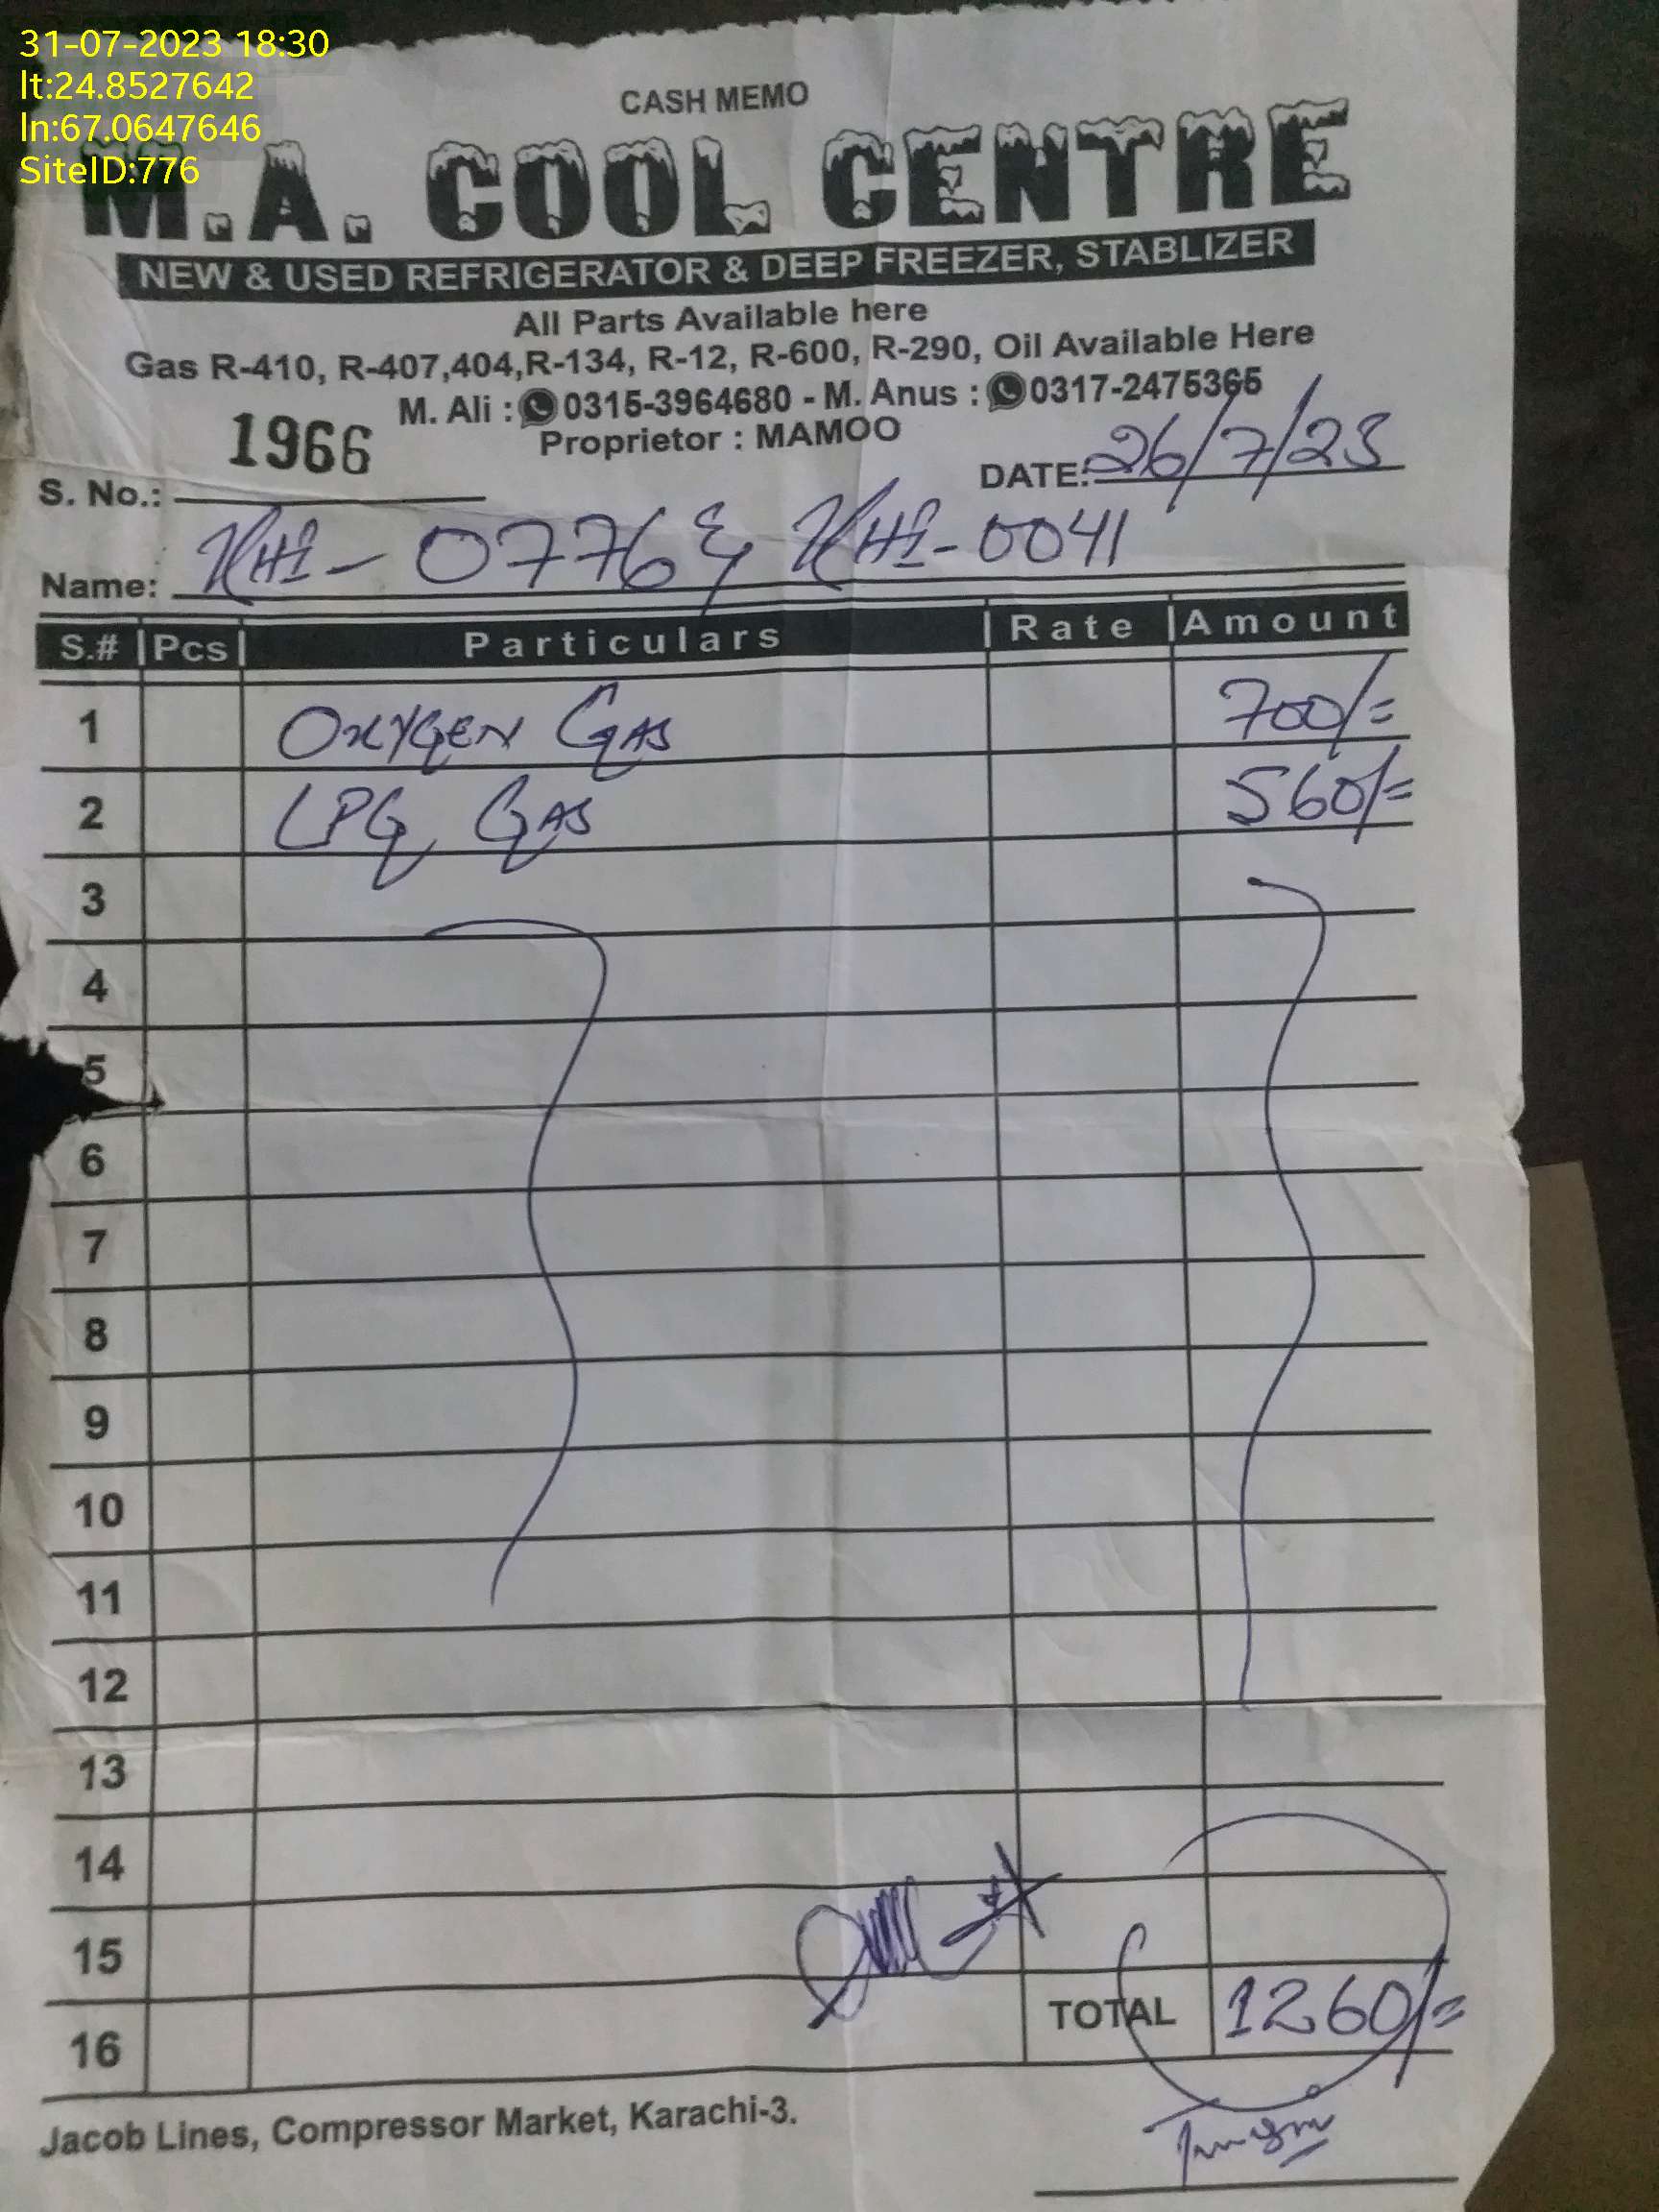 31-07-2023 18:30
lt:24.8527642
ln:67.0647646
SiteID:776
CASH MEMO
M.A. COOL CENTRE
NEW & USED REFRIGERATOR & DEEP FREEZER, STABLIZER
All Parts Available here
Gas R-410, R-407,404,R-134, R-12, R-600, R-290, Oil Available Here
M. Ali : 0315-3964680 - M. Anus : 0317-2475365
Proprietor : MAMOO
S. No.: 1966 DATE: 26/7/23
Name: KHI-0776 & KHI-0041
S.# Pcs Particulars Rate Amount
1 OXYGEN GAS 700/=
2 LPG GAS 560/=
3
4
5
6
7
8
9
10
11
12
13
14
15
16 TOTAL 1260/=
Jacob Lines, Compressor Market, Karachi-3.